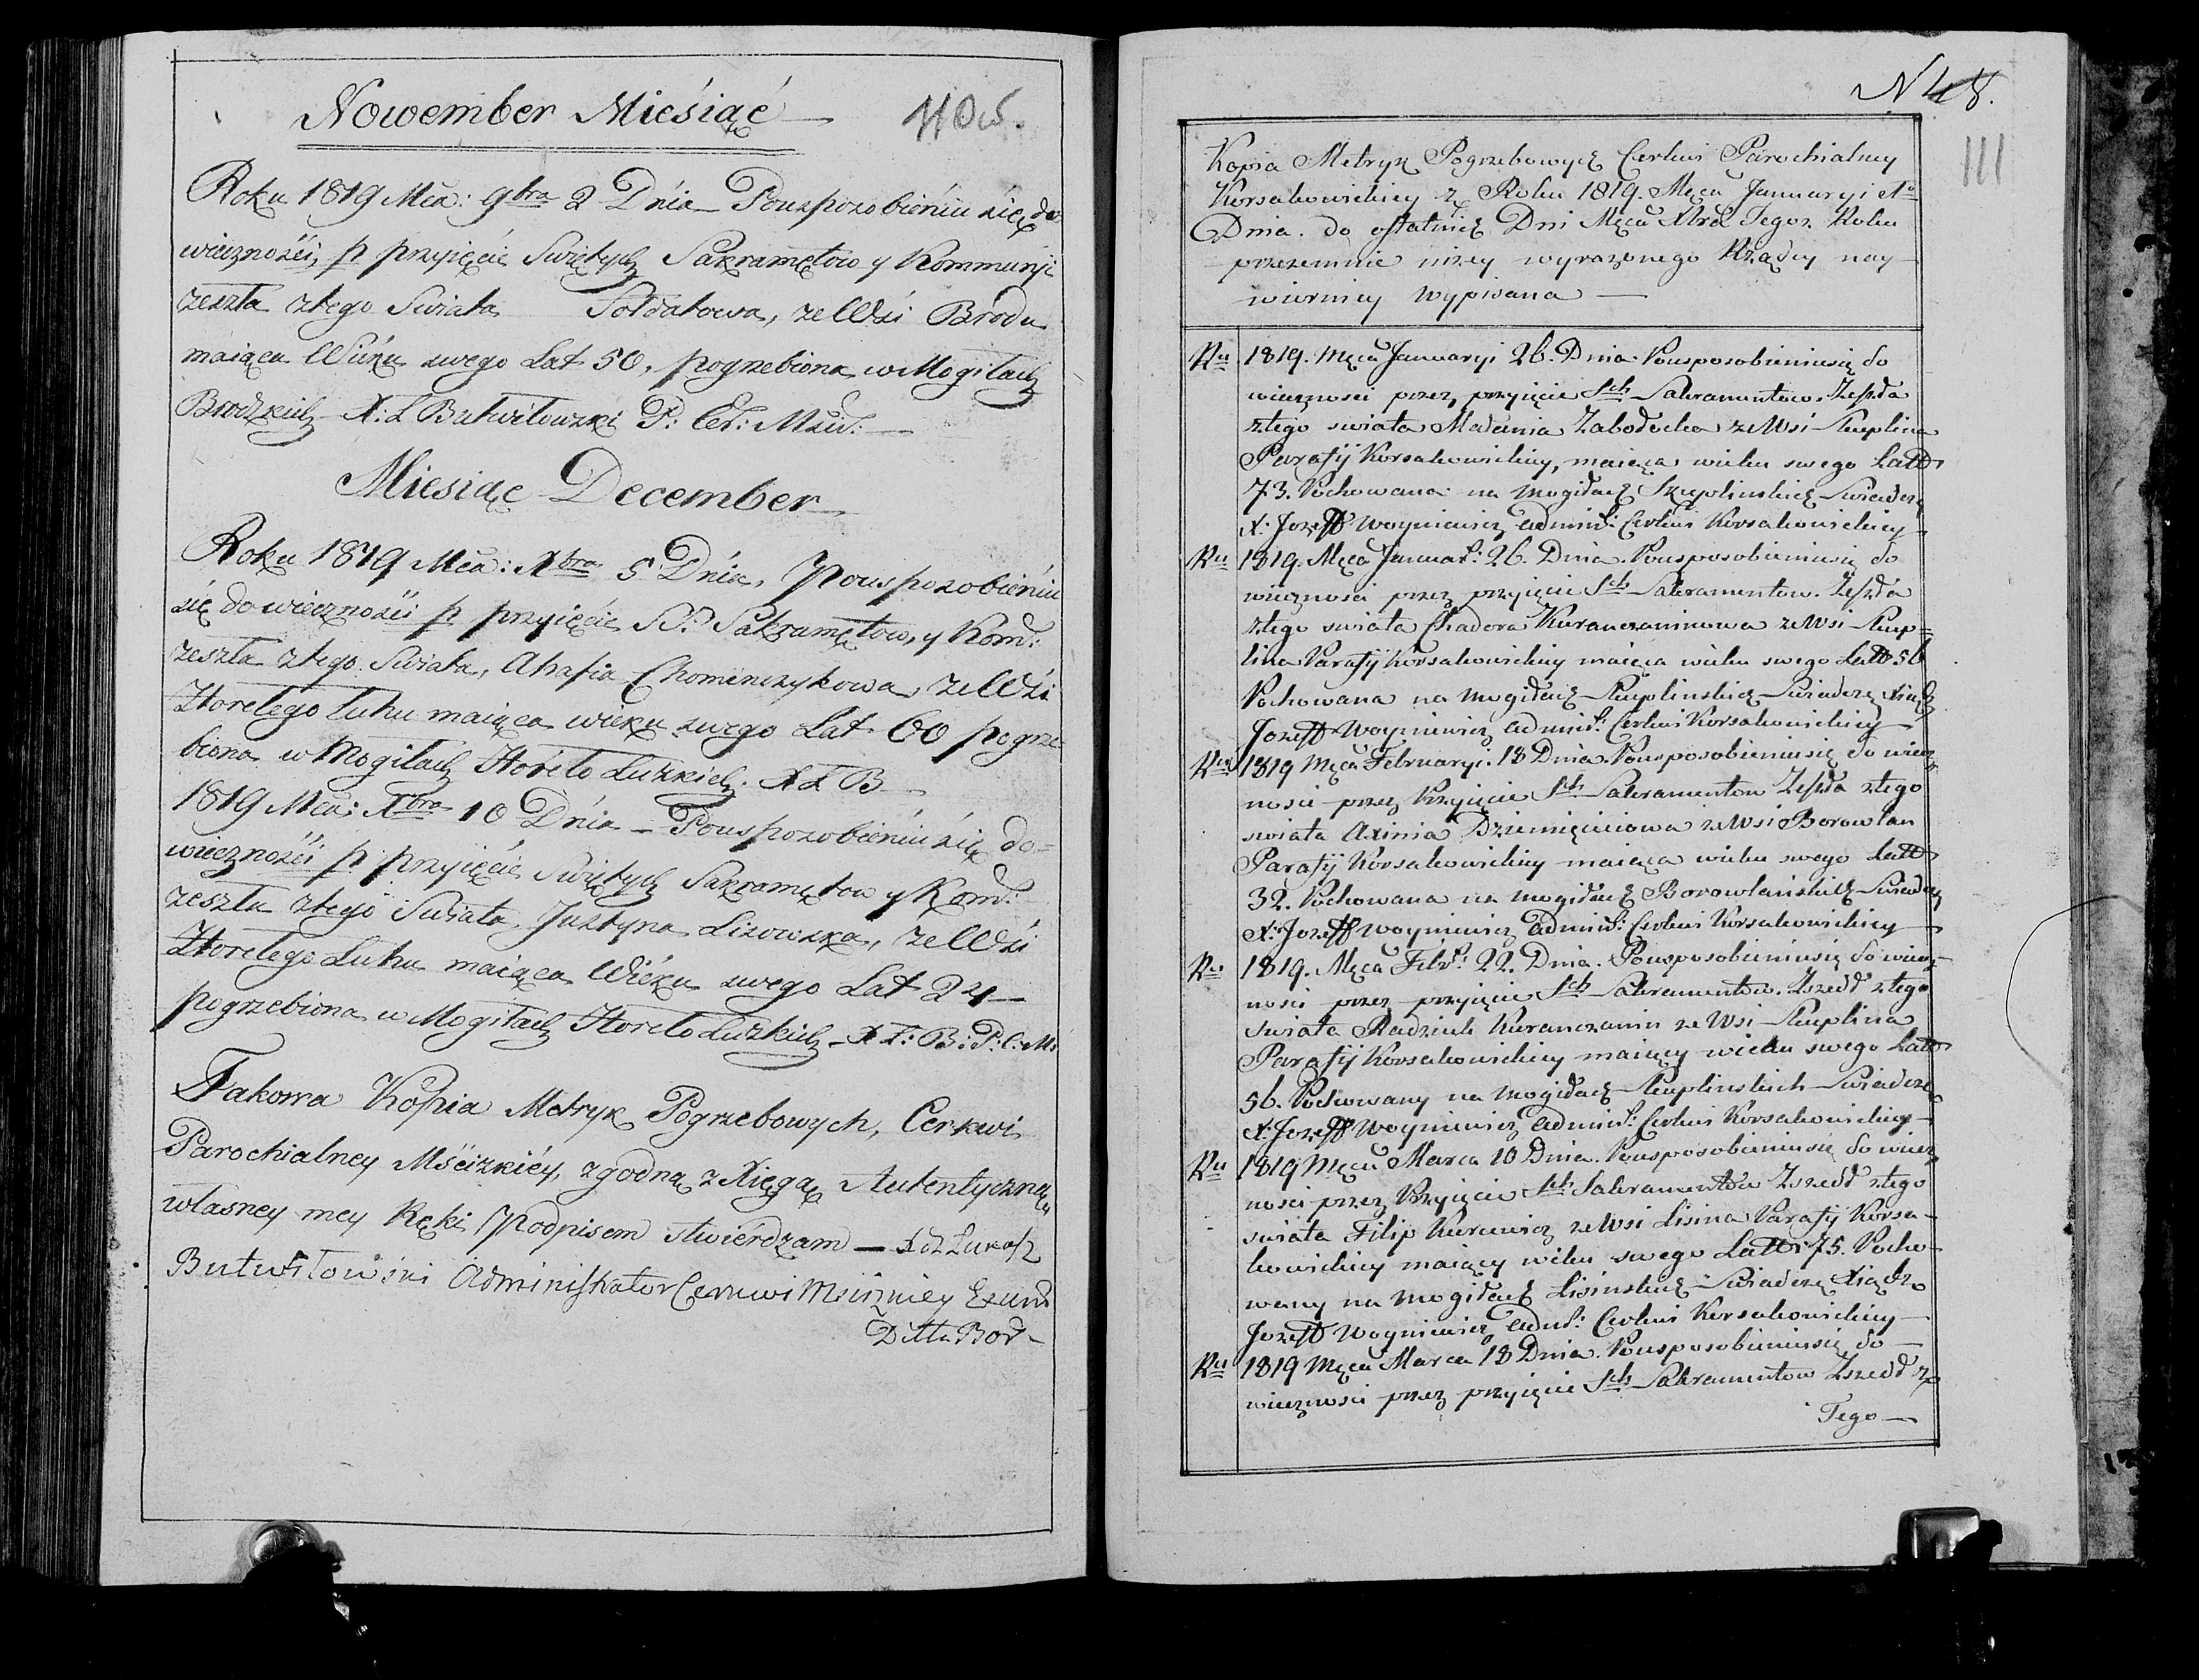 Nowember Miesiąć
110 w.
Roku 1819 Mca: 9bra 2 Dnia Pouspozobieniu się do
wiecznośći, p przyięcie Swiętych Sakramętow y Kommunji
zeszła ztego Swiata Sołdatowa, ze Wśi Brodu
maiąca Wieku swego Lat 50, pogrzebiona w Mogiłach
Brodzkich X: L Butwiłowzki P: Cer: Mśćiź:
Miesiąc December
Roku 1819 Mca: Xbra 5 Dnia, Pouspozobieniu
się do wiecznośći p przyięcie SS. Sakramętow, y Kom:
zeszła ztego Swiata, Ahafia Chomenczykowa, ze Wśi
Horełego Luhu maiąca wieku swego Lat 60 pogrze-
biona w Mogiłach Horeło Luzkich. X L B
1819 Mca: Xbra 10 Dnia Pouspozobieniu się do=
wiecznośći p przyięcie Swiętych Sakramętow y Kom:
zeszła ztego Swiata Juztyna Lisowzka, ze Wśi
Horełego Luhu maiąca Wieku swego Lat 24
pogrzebiona w Mogiłach Horeło Luzkich X Ł: B: P: C: M:
Takowa Kopia Metryk Pogrzebowych, Cerkwi
Parochialney Mśćizkiey, zgodną z Xięgą Autentyczną
własney mey Ręki Podpisem stwierdzam — Xdz Lukasz
Butwiłowiski Administrator Cerkwi Mśćizkiey
Ditta Bor
N 48.
111
Kopia Metryk Pogrzebowych Cerkwi Parochialney
Korsakowickiey z Roku 1819. Mca Januaryi 1o
Dnia. do ostatnich Dni Mca Xbra Tegoż. Roku
przezemnie niżey wyrażonego Rządcy nay
wierniey wypisana
Ru 1819. Mca Januaryi 26. Dnia. Pousposobieniusię do
wiecznosci przez przyięcie Sch Sakramentow. Zeszła
ztego swiata Małania Zabołocka ze Wsi Skuplina
Parafij Korsakowickiey, maiąca wieku swego Latt
73. Pochowana na mogiłach Skuplinskich Swiadczę
X. Jozeff Woyniewicz Admin: Cerkwi Korsakowickiey
Ru 1819. Mca Januar: 26. Dnia. Pousposobieniusię do
wiecznosci przez przyięcie Sch Sakramentow. Zeszła
ztego swiata Chadora Kuranczaninowa ze Wsi Skup=
lina Parafij Korsakowickiey maiąca wieku swego Latt 56
Pochowana na mogiłach Skuplinskich Swiadczę Xiądz
Jozeff Woyniewicz Admin: Cerkwi Korsakowickiey
Ru 1819 Mca Februaryi. 18 Dnia. Pousposobieniusię do wiecz
nosci przez Przyięcie Sch Sakramentow Zeszła ztego
swiata Axinia Dziemięciowa ze Wsi Borowlan
Parafij Korsakowickiey maiąca wieku swego Latt
32. Pochowana na mogiłach Borowlańskich Swiadczę
X. Jozeff Woyniewicz Admin: Cerkwi Korsakowickiey
Ru 1819. Mca Febr: 22. Dnia. Pousposobieniusię do wiecz-
nosci przez przyięcie Sch Sakramentow. Zszedł ztego
swiata Radziuk Kuranczanin ze Wsi Skuplina
Parafij Korsakowickiey maiący wieku swego Latt
56. Pochowany na mogiłach Skuplinskich Swiadczę
X. Jozeff Woyniewicz Admin: Cerkwi Korsakowickiey
Ru 1819 Mca Marca 10 Dnia. Pousposobieniusię do wiecz
nosci przez Przyięcie Sch Sakramentow Zszedł ztego
swiata Filip Kurewicz ze Wsi Lisina Parafij Korsa-
kowickiey maiący wieku swego Latt 75. Pocho-
wany na mogiłach Lisinskich Swiadczę Xiądz
Jozeff Woyniewicz Adm: Cerkwi Korsakowickiey
Ru 1819 Mca Marca 18 Dnia. Pousposobieniusię do
wiecznosci przez przyięcie Sch Sakramentow Zszedł z
Tego